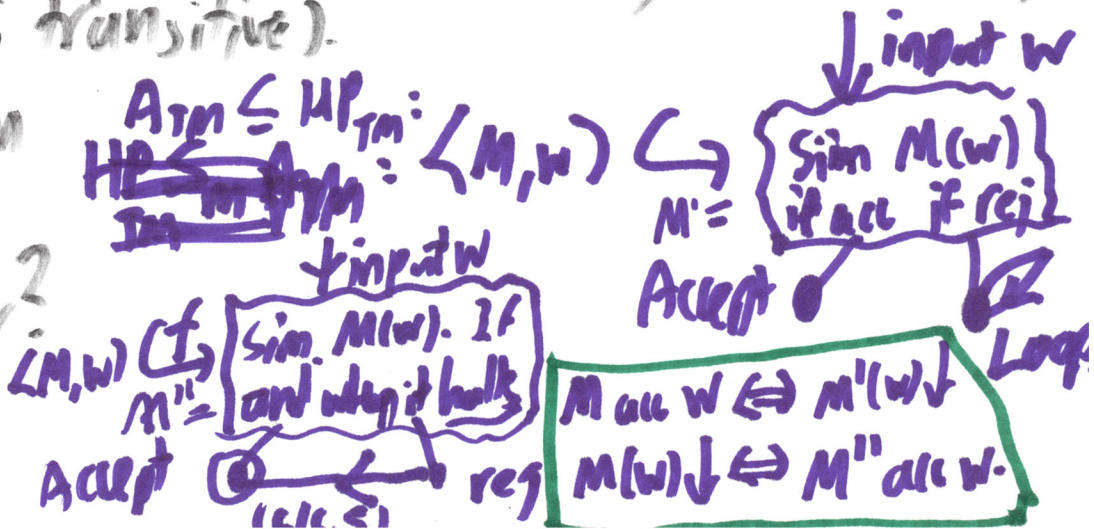 transitive).
input w
A_TM ≤ HP_TM: ⟨M,w⟩ ↪
M' =
Sim M(w)
if acc if rej
Accept
Loop
2
input w
⟨M,w⟩ f ↪
M'' =
Sim. M(w). If
and when it halts
Accept
rej
M acc w ⇔ M'(w)↓
M(w)↓ ⇔ M'' acc w.